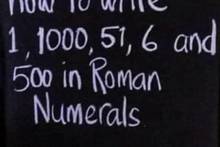 How To Write
1, 1000, 51, 6 and
500 in Roman
Numerals